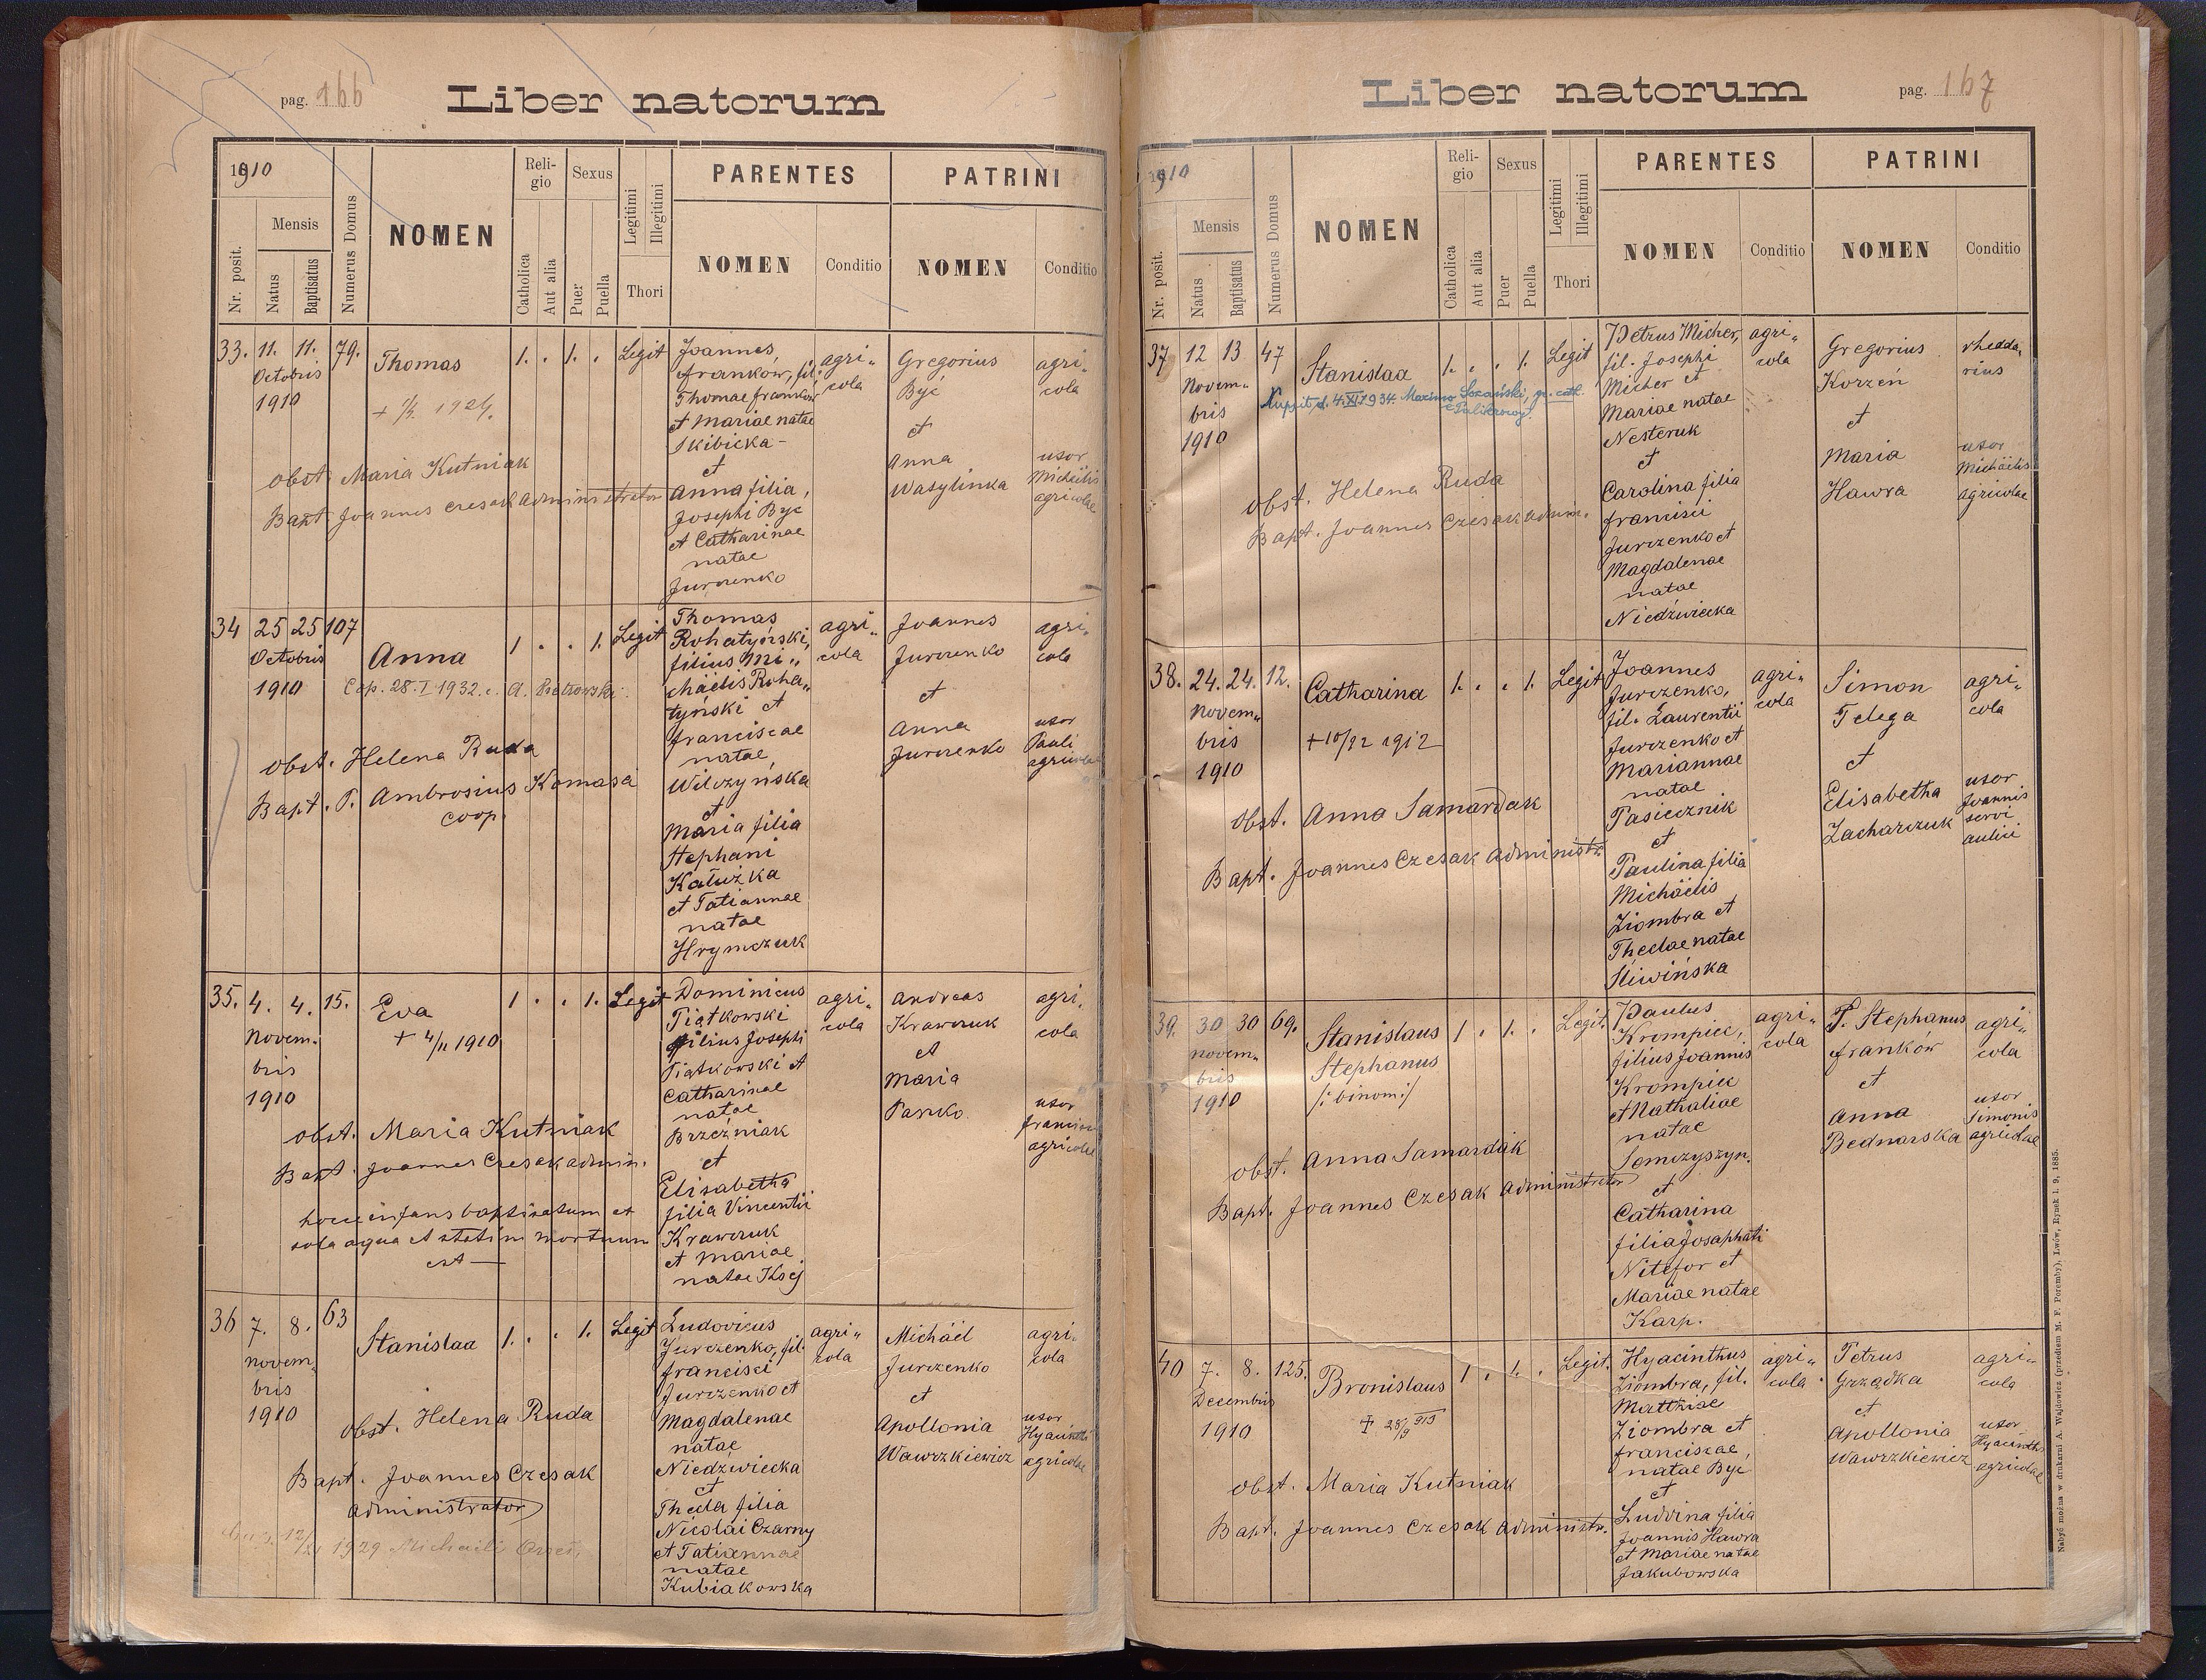 pag. 166
Liber natorum
1910
Nr. posit.
Mensis
Natus
Baptisatus
Numerus Domus
NOMEN
Religio
Catholica
Aut alia
Sexus
Puer
Puella
Legitimi
Illegitimi
Thori
PARENTES
NOMEN
Conditio
PATRINI
NOMEN
Conditio
33. 11. 11. 79.
Octobris
1910
Thomas
1. . 1. . Legit
Joannes
Franków, fil.
Thomae Franków
et Mariae natae
Skibicka -
et
Anna filia
Josephi Być
et Catharinae
natae
Jurczenko
agri„
cola
Gregorius
Być
et
Anna
Wasylinka
agri„
cola
uxor
Michäelis
agricolae
obst. Maria Kutniak
Bapt. Joannes Czesak administrator
34 25 25 107
Octobris
1910
Anna
Cop. 28.I 1932. c. A. Piotrowski.
1 . . 1. Legit
Thomas
Rohatyński,
filius Mi„
chäelis Roha„
tyński et
Franciscae
natae
Wilczyńska
et
Maria filia
Stephani
Kałużka
et Tatiannae
natae
Hrymczuk
agri„
cola
Joannes
Jurczenko
et
Anna
Jurczenko
agri„
cola
uxor
Pauli
agricolae
obst. Helena Ruda
Bapt. P. Ambrosius Komasa
coop.
35. 4. 4. 15.
Novem„
bris
1910
Eva
+ 4/11 1910
1 . . 1. Legit
Dominicus
Piątkowski
filius Josephi
Piątkowski et
Catharinae
natae
Brzeźniak
et
Elisabetha
filia Vincentii
Krawczuk
et Mariae
natae Ksej
agri„
cola
Andreas
Krawczuk
et
Maria
Pańko
agri„
cola
uxor
Francisci
agricolae
obst. Maria Kutniak
Bapt. Joannes Czesak admin.
infans baptisatum et
sola aqua et statim mortuum
est —
36 7. 8. 63
Novem„
bris
1910
Stanislaa
1. . . 1. Legit
Ludovicus
Jurczenko, fil.
Francisci
Jurczenko et
Magdalenae
natae
Niedźwiecka
et
Thecla filia
Nicolai Czarny
et Tatiannae
natae
Kubiakowska
agri„
cola
Michäel
Jurczenko
et
Apollonia
Wawrzkiewicz
agri„
cola
uxor
Hyacinthi
agricolae
obst. Helena Ruda
Bapt. Joannes Czesak
administrator
1929 Michaili
pag. 167
Liber natorum
1910
Nr. posit.
Mensis
Natus
Baptisatus
Numerus Domus
NOMEN
Religio
Catholica
Aut alia
Sexus
Puer
Puella
Legitimi
Illegitimi
Thori
PARENTES
NOMEN
Conditio
PATRINI
NOMEN
Conditio
37 12 13 47
Novem„
bris
1910
Stanislaa
Nupsit d. 4.XI.1934. Maximo Łozański, gr. cath.
1. . . 1. Legit
Petrus Micher,
fil. Josephi
Micher et
Mariae natae
Nesteruk
et
Carolina filia
Francisci
Jurczenko et
Magdalenae
natae
Niedźwiecka
agri„
cola
Gregorius
Korzeń
et
Maria
Hawra
rhedda„
rius
uxor
Michäelis
agricolae
obst. Helena Ruda
Bapt. Joannes Czesak admin.
38. 24. 24. 12.
Novem„
bris
1910
Catharina
+ 10/22 1912
1. . . 1. Legit
Joannes
Jurczenko,
fil. Laurentii
Jurczenko et
Mariannae
natae
Pasiecznik
et
Paulina filia
Michäelis
Ziombra et
Theclae natae
Śliwińska
agri„
cola
Simon
Telega
et
Elisabetha
Zacharczuk
agri„
cola
uxor
Joannis
servi
aulici
obst. Anna Samardak
Bapt. Joannes Czesak administr.
39. 30 30 69.
Novem„
bris
1910
Stanislaus
Stephanus
/: binom :/
1 . 1. . Legit.
Paulus
Krompiec,
filius Joannis
Krompiec
et Nathaliae
natae
Semczyszyn.
et
Catharina
filia Josaphati
Nitefor et
Mariae natae
Karp.
agri„
cola
P. Stephanus
Franków
et
Anna
Bednarska
agri„
cola
uxor
Simonis
agricolae
obst. Anna Samardak
Bapt. Joannes Czesak administrator
40 7. 8. 125.
Decembris
1910
Bronislaus
+ 28/9 913
1 . 1. . Legit.
Hyacinthus
Ziombra, fil.
Matthiae
Ziombra et
Franciscae,
natae Być
et
Ludvina filia
Joannis Hawra
et Mariae natae
Jakubowska
agri„
cola
Petrus
Grządka
et
Apollonia
Wawrzkiewicz
agri„
cola
uxor
Hyacinthi
agricolae
obst. Maria Kutniak
Bapt. Joannes Czesak administr.
Nabyć można w drukarni A. Wajdowicz (przedtem M. F. Poremby), Lwów, Rynek l. 9, 1885.